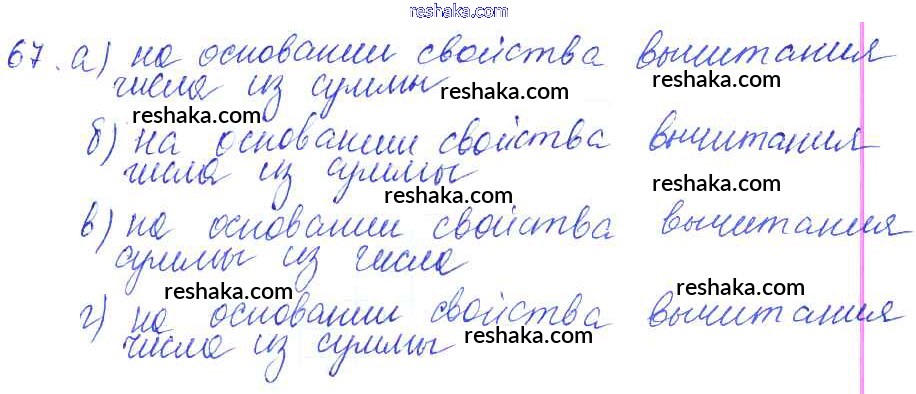 reshaka.com
67. а) на основании свойства вычитания
числа из суммы reshaka.com reshaka.com
reshaka.com
б) на основании свойства вычитания
числа из суммы reshaka.com reshaka.com
в) на основании свойства вычитания
суммы из числа
reshaka.com reshaka.com
г) на основании свойства вычитания
числа из суммы reshaka.com